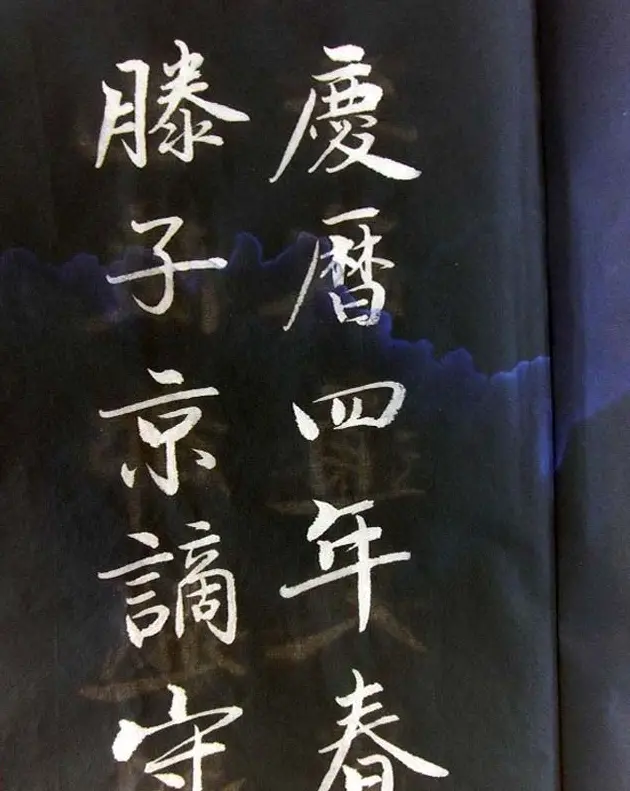 慶曆四年春
滕子京謫守